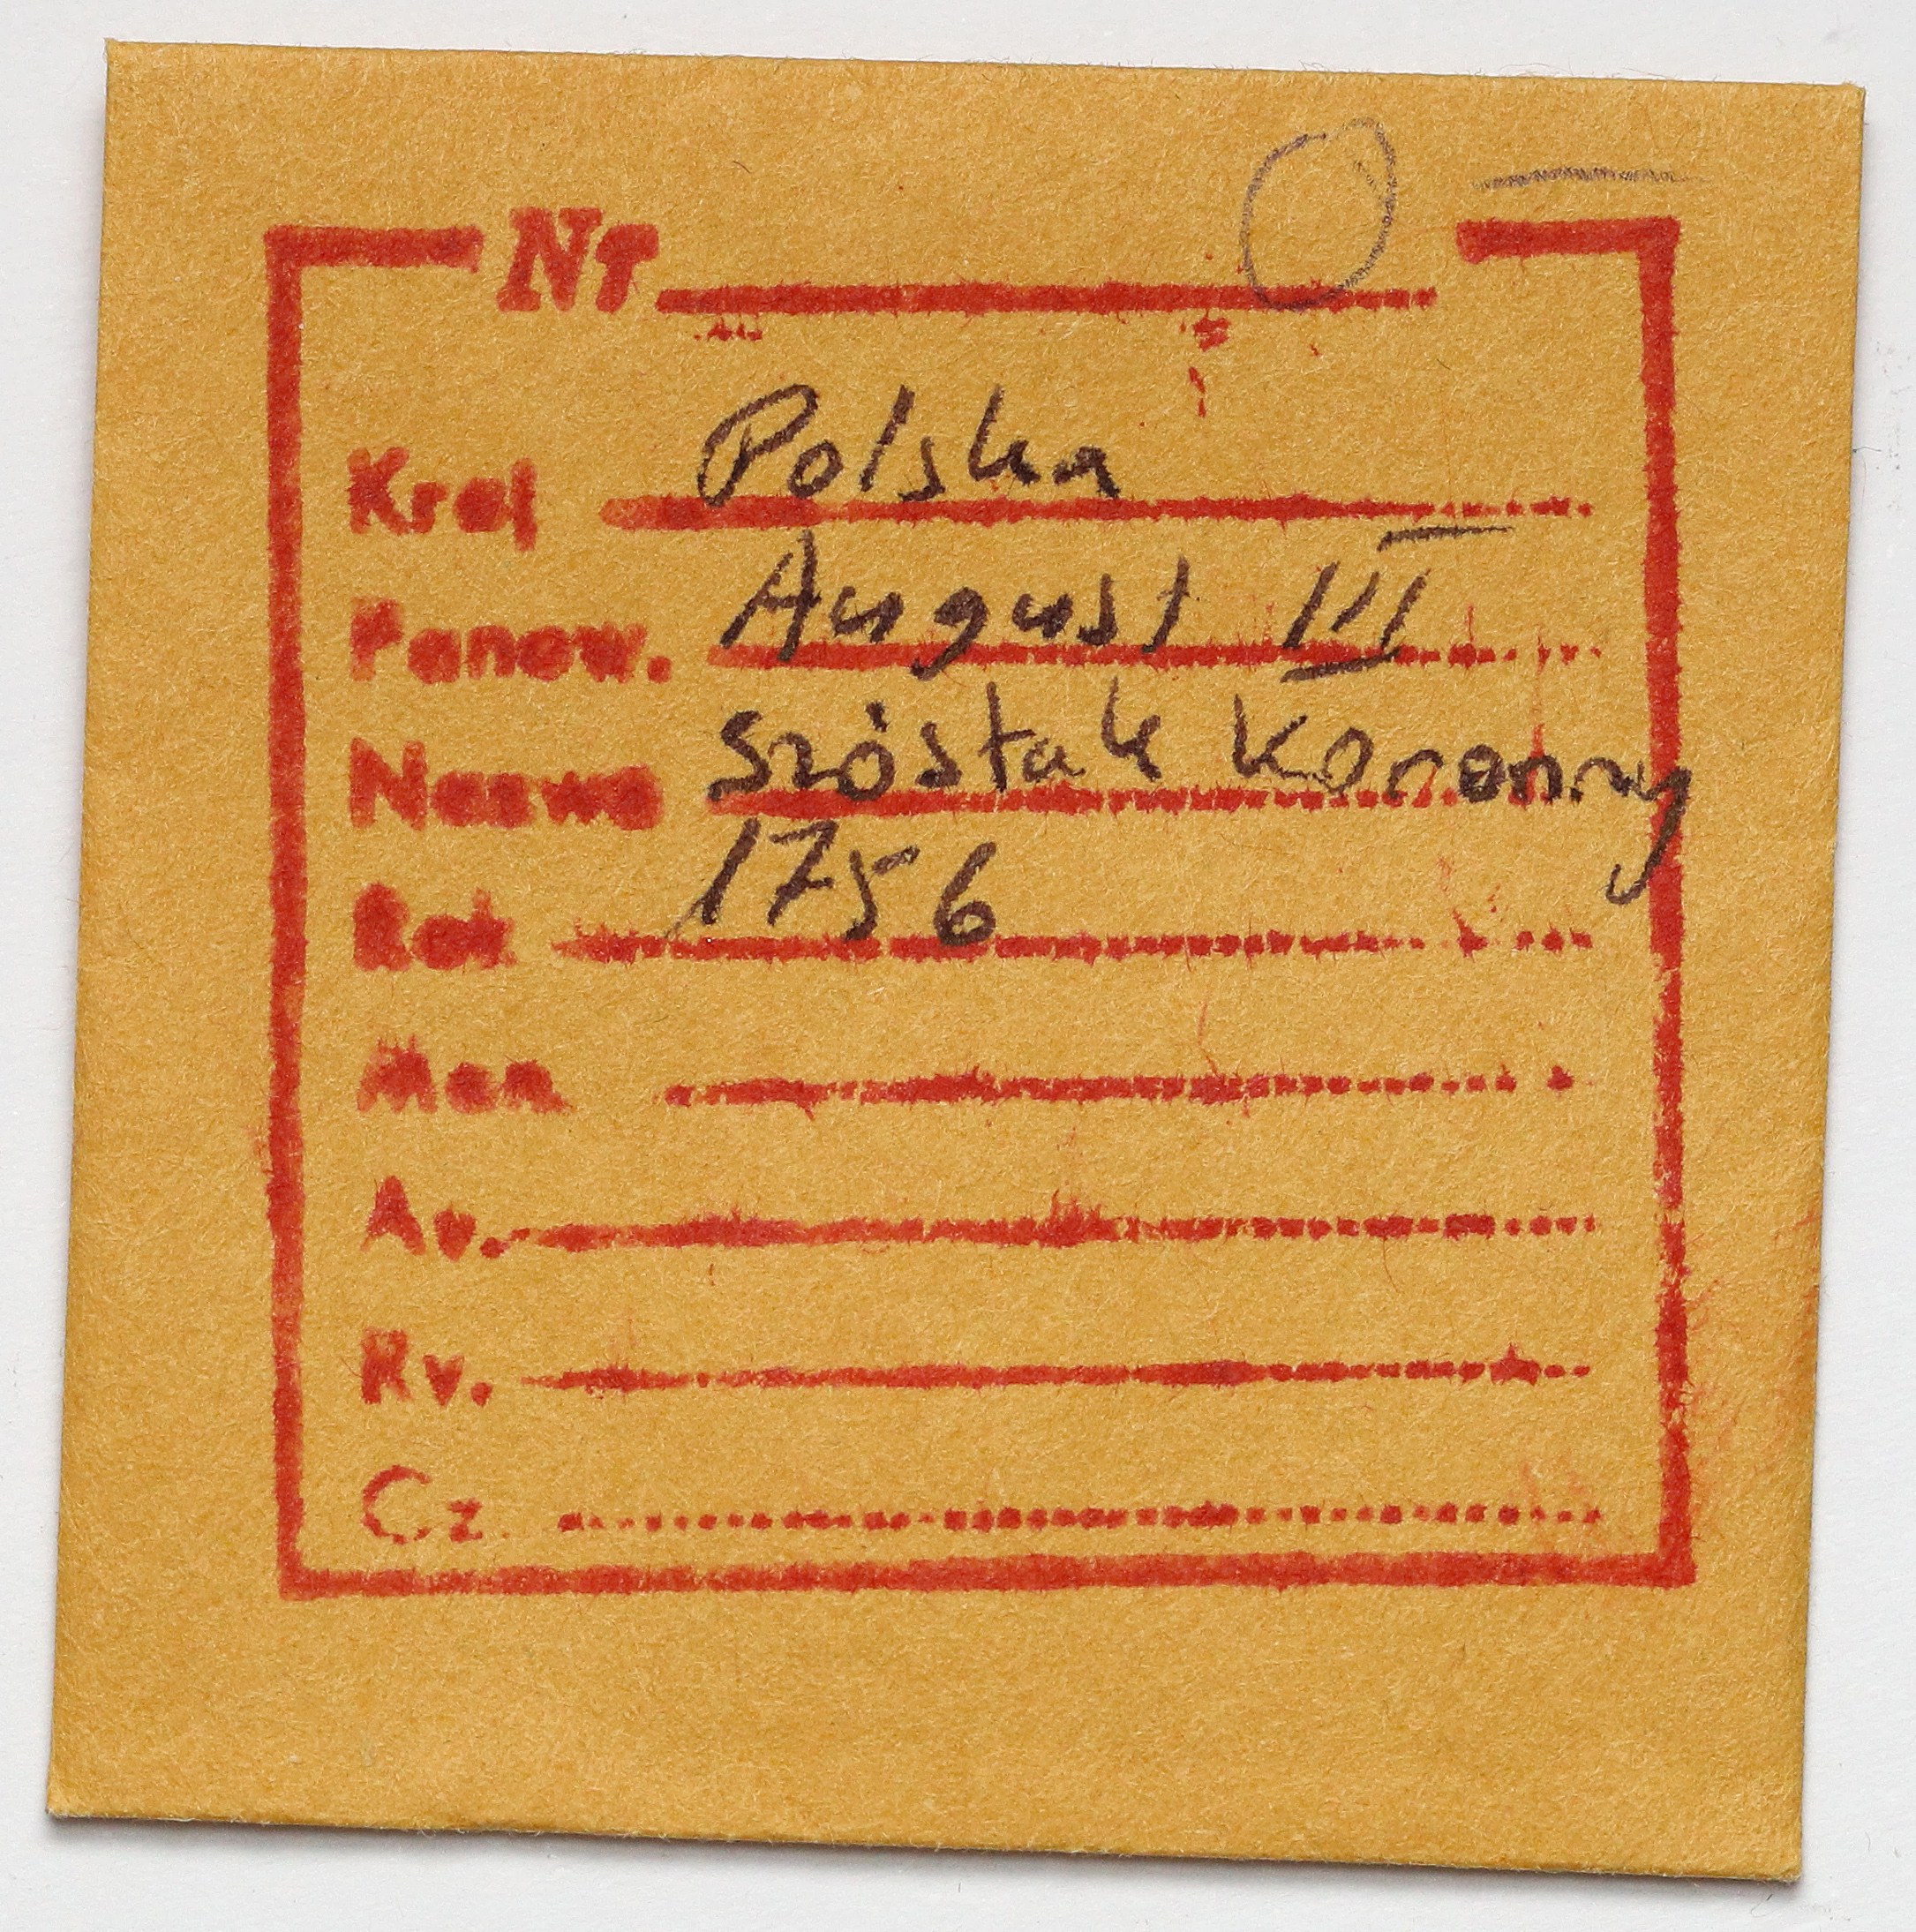 Nr
Kraj Polska
Panow. August III
Nazwa Szóstak Koronny
Rok 1756
Men.
Av.
Rv.
Cz.